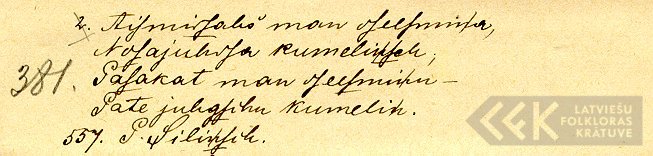 2. Aismirsahs man dseesmina,
Nosajuhdsa kumelinsch;
381.
Pasakat man dseesminu –
Pate juhgschu kumelin.
557. P. Silinsch.
LATVIEŠU
FOLKLORAS
KRĀTUVE